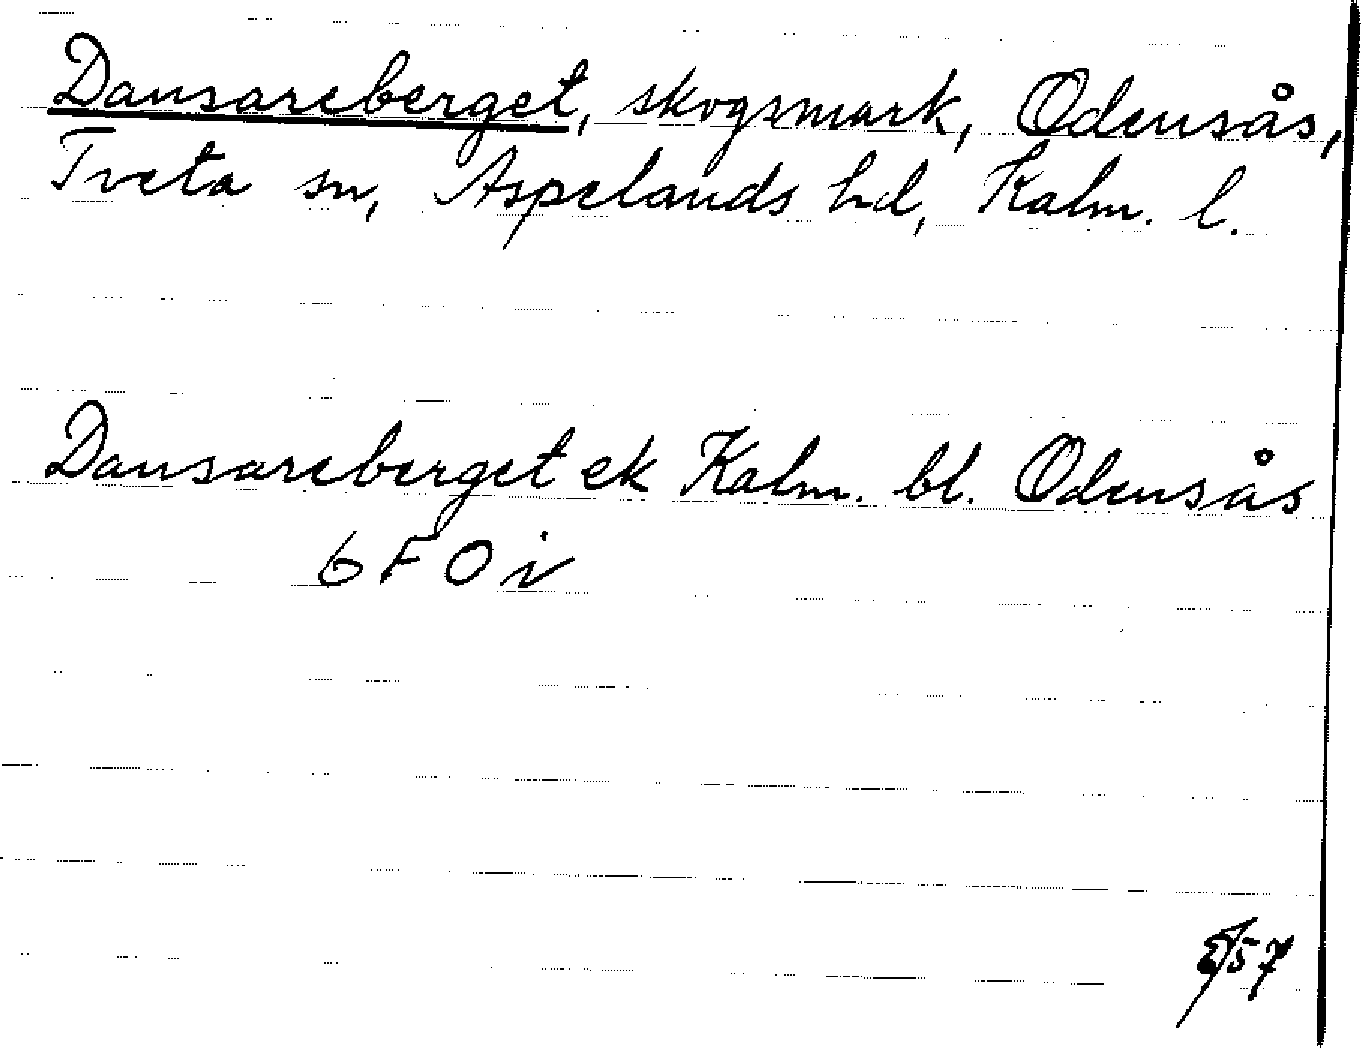 Dansareberget, skogsmark, Odensås,
Tveta sn, Aspelands hd, Kalm. l.
Dansareberget ek Kalm. bl. Odensås
6 F 0 i